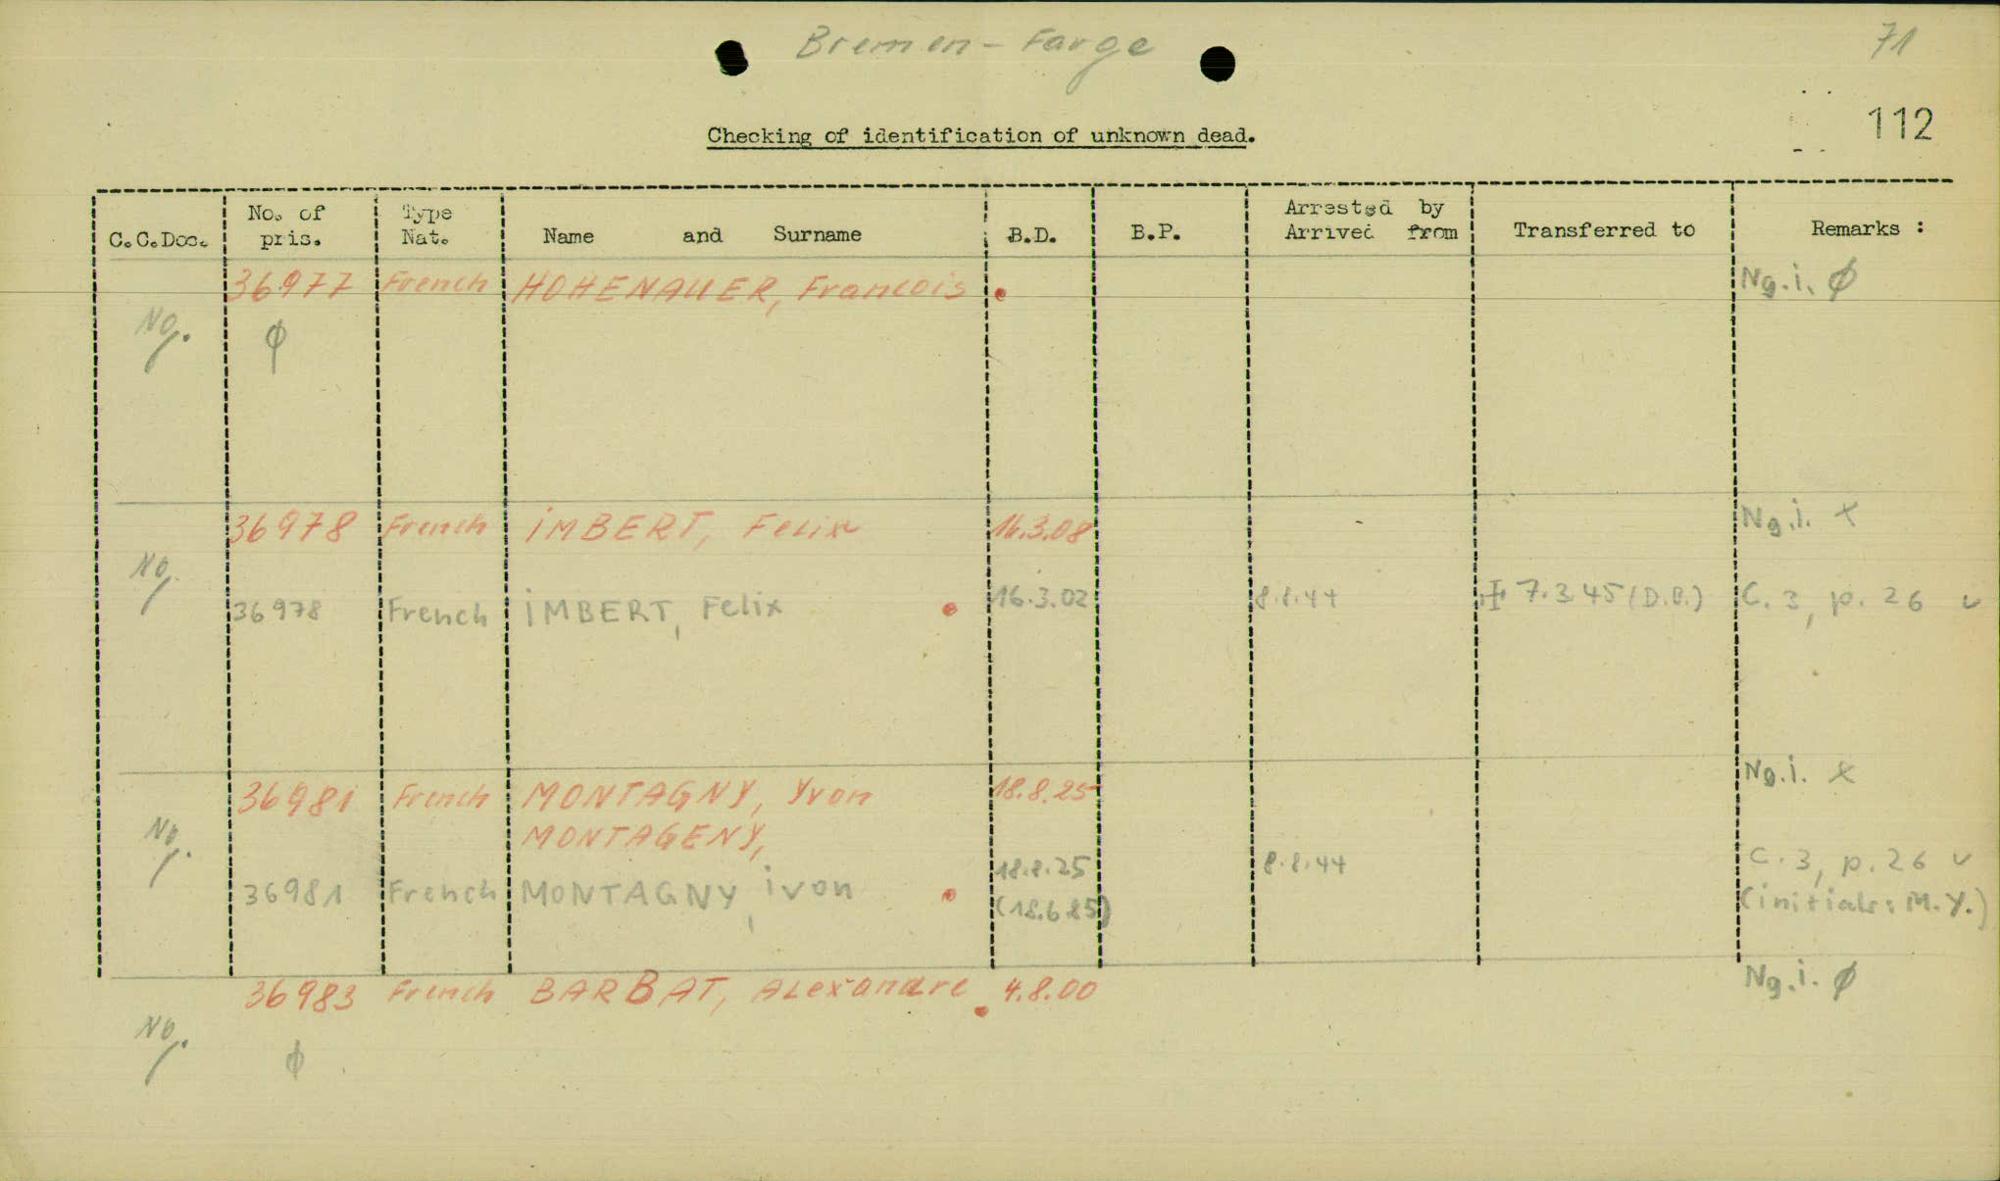 Bremen - Farge
71
112
Checking of identification of unknown dead.
C.C.Doc. No. of pris. Type Nat. Name and Surname B.D. B.P. Arrested by Arrived from Transferred to Remarks :
36977 French HOHENAUER, Francois . Ng.i. ϕ
Ng. ϕ
36978 French IMBERT, Felix 16.3.08 Ng.i. x
Ng.
36978 French IMBERT, Felix 16.3.02 8.8.44 7.3.45 (D.B.) C.3, p.26 v
36981 French MONTAGNY, Yvon 18.8.25 Ng.i. x
MONTAGENY,
Ng. 18.8.25 8.8.44 C.3, p.26 v
36981 French MONTAGNY, ivon (initials: M.Y.)
36983 French BARBAT, Alexandre 4.8.00 Ng.i. ϕ
Ng. ϕ